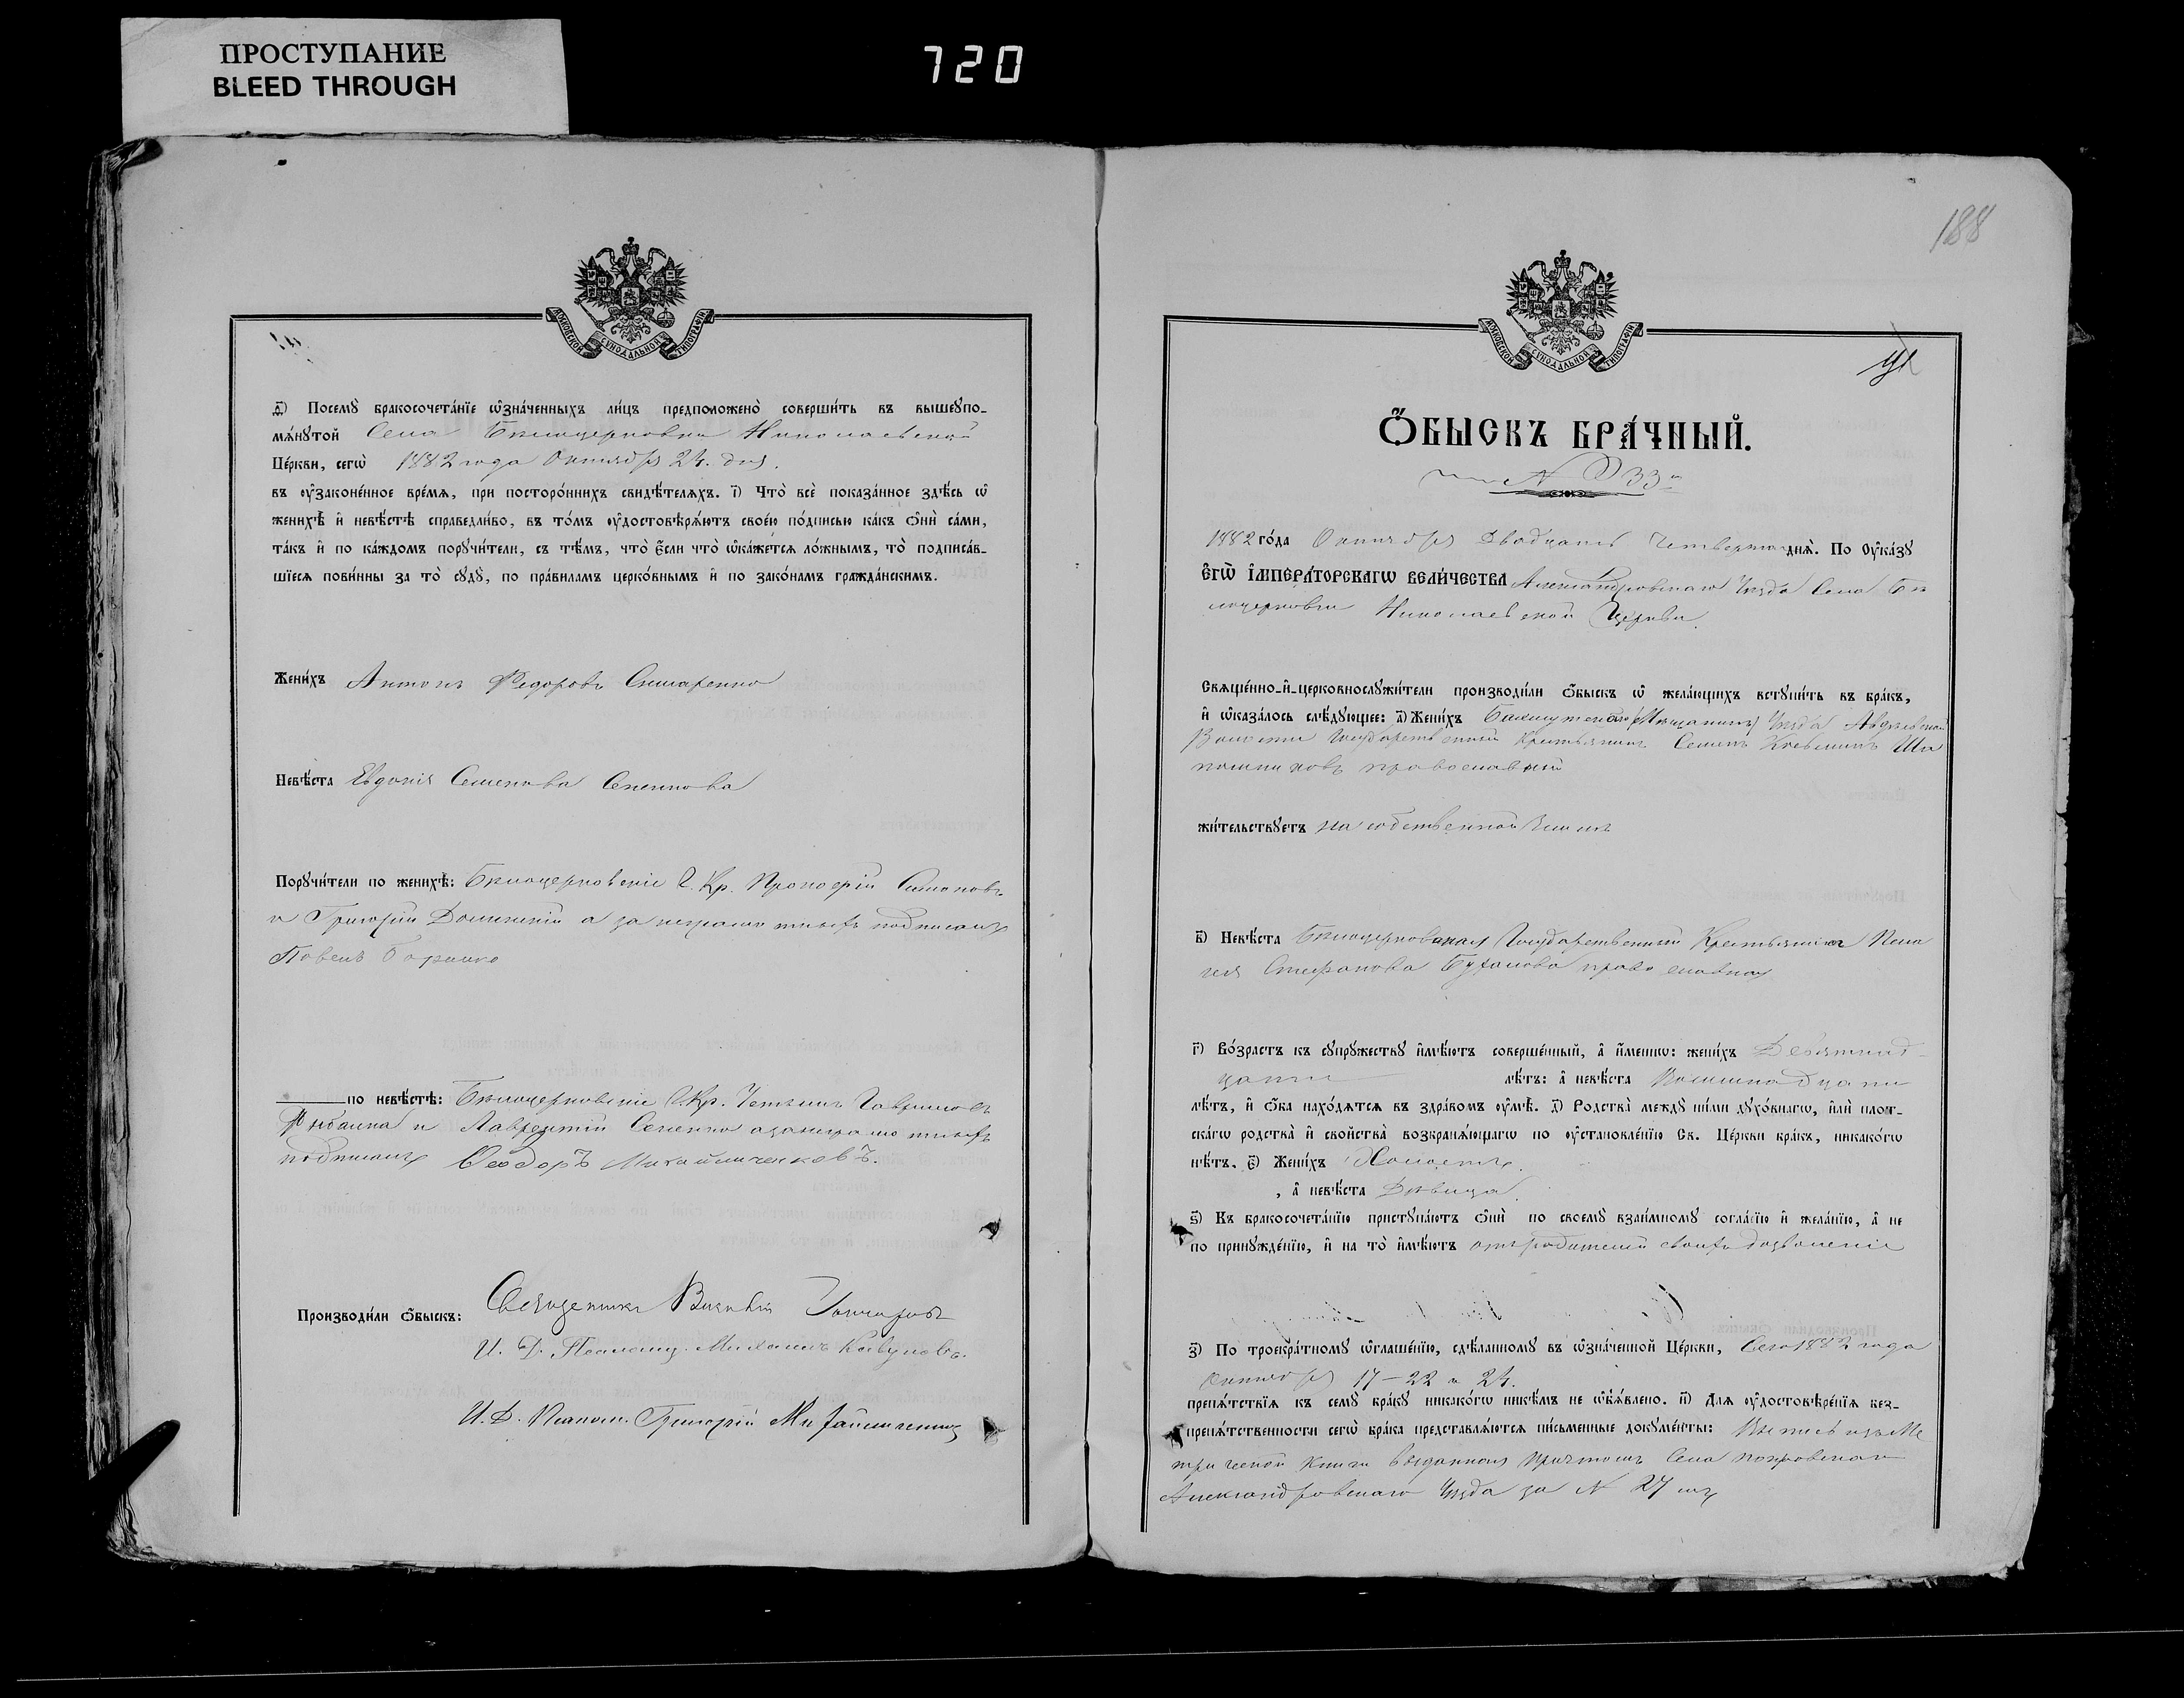 ПРОСТУПАНИЕ
BLEED THROUGH
720
МОСКОВСКОЙ СѴНОДАЛЬНОЙ ТИПОГРАФІИ
ѳ҃) Посемꙋ̀ бракосочета́нїе ѡ҆зна́ченныхъ ли́цъ предположено̀ соверши́ть въ вышеꙋпо-
мѧ́нꙋтой Села Бѣлоцерковки Николаевской
Це́ркви, сегѡ̀ 1882 года Октября 24. дня.
въ ᲂу҆законе́нное вре́мѧ, при посторо́ннихъ свидѣ́телѧхъ. і҃) Что̀ всѐ показа́нное здѣ́сь ѡ҆
женихѣ̀ и҆ невѣ́стѣ справедли́во, въ то́мъ ᲂу҆достовѣрѧ́ютъ свое́ю по́дписью ка́къ ѻ҆нѝ са́ми,
та́къ и҆ по ка́ждомъ порꙋчи́тели, съ тѣ́мъ, что̀ є҆́сли что̀ ѡ҆ка́жетсѧ ло́жнымъ, то̀ подписа́в-
шїесѧ пови́нны за то̀ сꙋдꙋ̀, по пра́виламъ церко́внымъ и҆ по зако́намъ гражда́нскимъ.
Жени́хъ Антонъ Федоровъ
Невѣ́ста Евдокія Семенова
Порꙋчи́тели по женихѣ̀: Бѣлоцерковскіе Г. Кр. Прокофій Симоновъ
и Григорій а за неграмотныхъ подписался
Павелъ
по невѣ́стѣ: Бѣлоцерковскіе Г. Кр.
и Лаврентій а за неграмотныхъ
подписался Ѳеодоръ Михайличенковъ.
Производи́ли ѻ҆́быскъ: Священникъ Гончаровъ
И. Д. Псаломщ. Михаилъ Кавуновъ.
И. Д. Псалом. Григорій Михайличенко
188
МОСКОВСКОЙ СѴНОДАЛЬНОЙ ТИПОГРАФІИ
Ѻ҆́БЫСКЪ БРА́ЧНЫЙ.
№ 33
1882 го́да Октября Двадцать Четвертаго днѧ̀. По ᲂу҆ка́зꙋ
Є҆ГѠ̀ И҆МПЕРА́ТОРСКАГѠ ВЕЛИ́ЧЕСТВА Александровскаго Уѣзда Села Бѣ
лоцерковки Николаевской Церкви.
Свѧще́нно-и҆-церковнослꙋжи́тели производи́ли ѻ҆́быскъ ѡ҆ жела́ющихъ встꙋпи́ть въ бра́къ,
и҆ ѡ҆каза́лось слѣ́дꙋющее: а҃) Жени́хъ Бахмутскаго Уѣзда Авдѣевской
Волости Государственный Крестьянинъ Семенъ
православный
жи́тельствꙋетъ на собственной землѣ
в҃) Невѣ́ста Бѣлоцерковская Государственный Крестьянка Пела
гея Стефанова православная
г҃) Во́зрастъ къ сꙋпрꙋ́жествꙋ и҆мѣ́ютъ соверше́нный, а҆ и҆́меннѡ: жени́хъ Девятнад-
цати лѣ́тъ: а҆ невѣ́ста Восемнадцати
лѣ́тъ, и҆ ѻ҆́ба нахо́дѧтсѧ въ здра́вомъ ᲂу҆мѣ̀. д҃) Родства̀ междꙋ ни́ми дꙋхо́внагѡ, и҆лѝ плот-
ска́гѡ родства̀ и҆ свойства̀ возбранѧ́ющагѡ по ᲂу҆становле́нїю Св. Це́ркви бра́къ, никако́гѡ
нѣ́тъ. є҃) Жени́хъ Холостъ.
, а҆ невѣ́ста Дѣвица.
ѕ҃) Къ бракосочета́нїю пристꙋпа́ютъ ѻ҆нѝ по своемꙋ̀ взаи́мномꙋ согла́сїю и҆ жела́нїю, а҆ не
по принꙋжде́нїю, и҆ на то̀ и҆мѣ́ютъ отъ родителей своихъ дозволеніе
з҃) По троекра́тномꙋ ѡ҆глаше́нїю, сдѣ́ланномꙋ въ ѡ҆зна́ченной Це́ркви, Сего 1882 года
Октября 17 – 22 и 24.
препѧ́тствїѧ къ семꙋ̀ бра́кꙋ никако́гѡ никѣ́мъ не ѡ҆б̾ѧ́влено. и҃) Длѧ ᲂу҆достовѣре́нїѧ без-
препѧ́тственности сегѡ̀ бра́ка представлѧ́ютсѧ пи́сьменные докꙋме́нты: Выпись изъ Ме
трической Книги выданная Причтомъ Села Покровскаго
Александровскаго Уѣзда за № 27 мъ